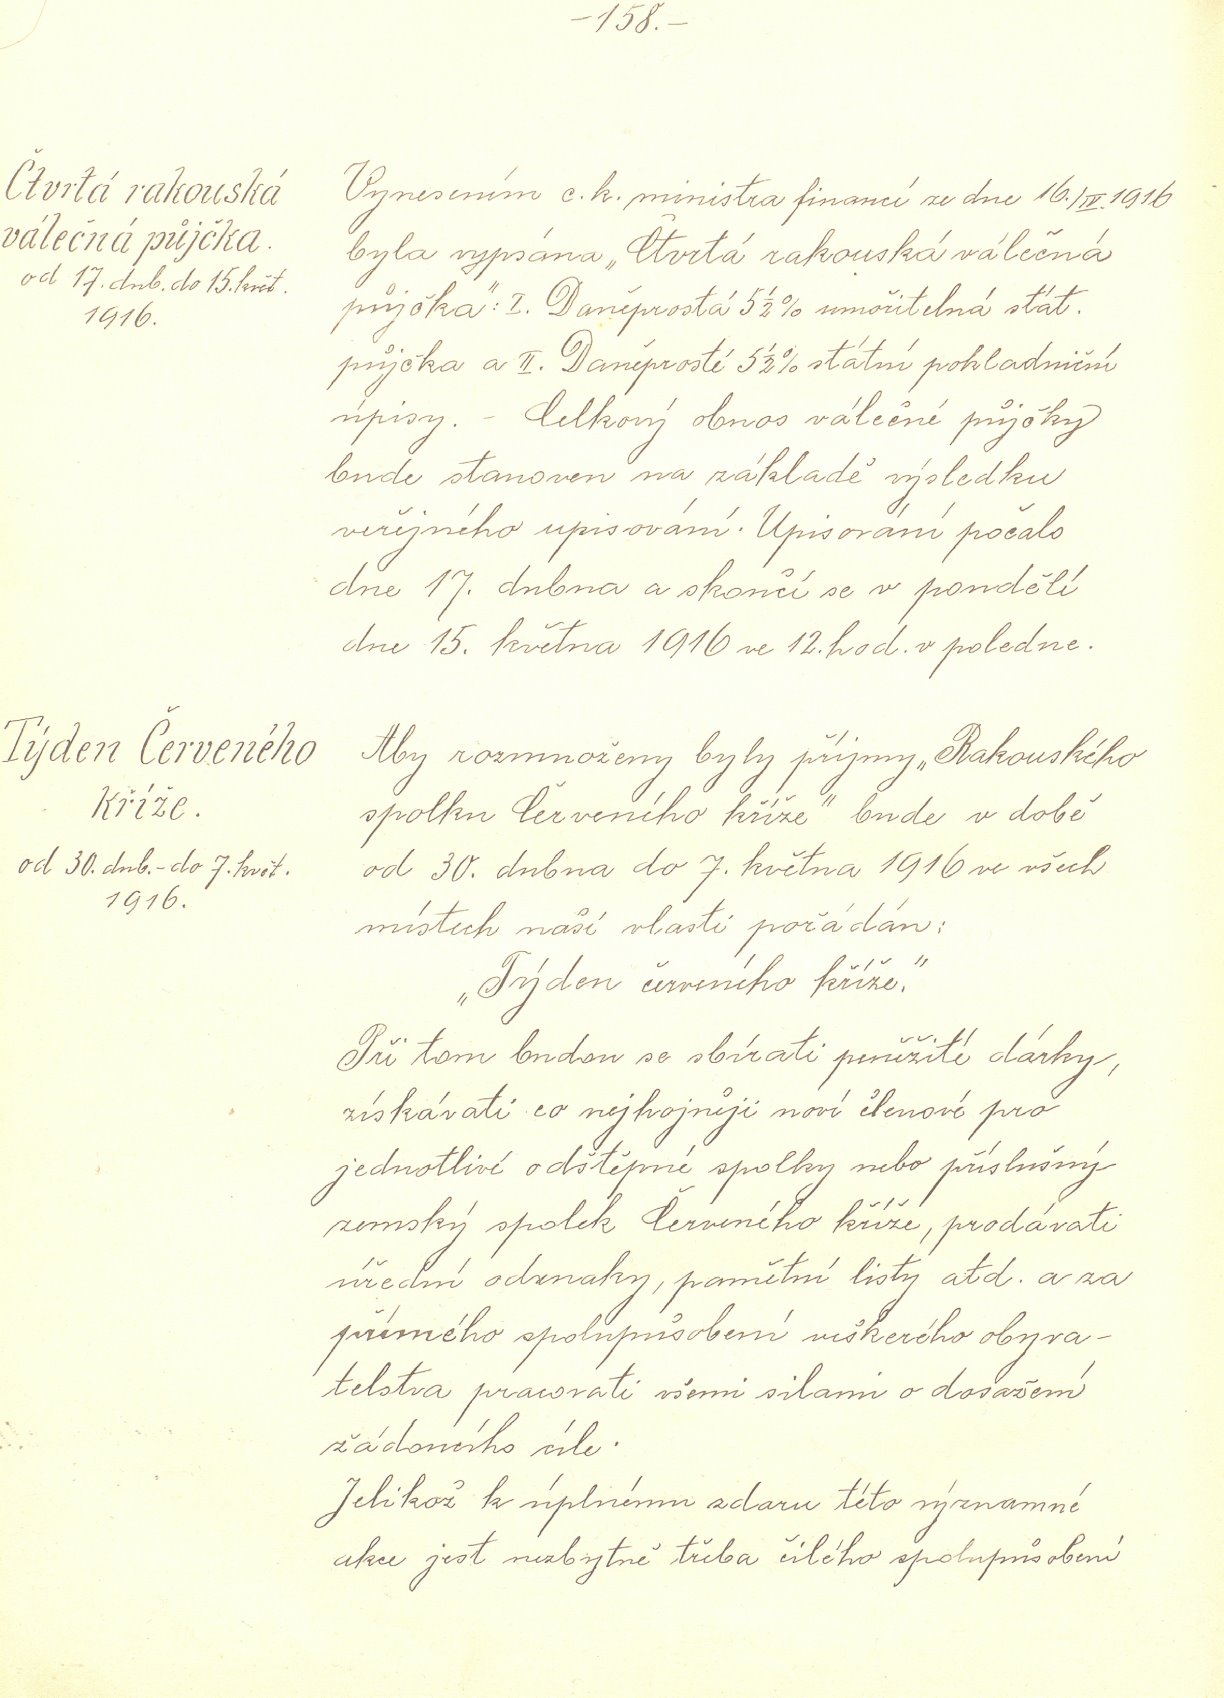 -158.-
Čtvrtá rakouská
válečná půjčka.
od 17. dub. do 15. květ.
1916.
Vynesením c. k. ministra financí ze dne 16./IV. 1916
byla vypsána „Čtvrtá rakouská válečná
půjčka": I. Daněprostá 5½% umořitelná stát.
půjčka a II. Daněprosté 5½% státní pokladniční
úpisy. - Celkový obnos válečné půjčky
bude stanoven na základě výsledku
veřejného upisování. Upisování počalo
dne 17. dubna a skončí se v pondělí
dne 15. května 1916 ve 12. hod. v poledne.
Týden Červeného
kříže.
od 30. dub. - do 7. květ.
1916.
Aby rozmnoženy byly příjmy „Rakouského
spolku Červeného kříže" bude v době
od 30. dubna do 7. května 1916 ve všech
místech naší vlasti pořádán:
„Týden červeného kříže."
Při tom budou se sbírati peněžité dárky,
získávati co nejhojněji noví členové pro
jednotlivé odštěpné spolky nebo příslušný
zemský spolek Červeného kříže, prodávati
úřední odznaky, pamětní listy atd. a za
přímého spolupůsobení veškerého obyva-
telstva pracovati všemi silami o dosažení
žádoucího cíle.
Jelikož k úplnému zdaru této významné
akce jest nezbytně třeba čilého spolupůsobení